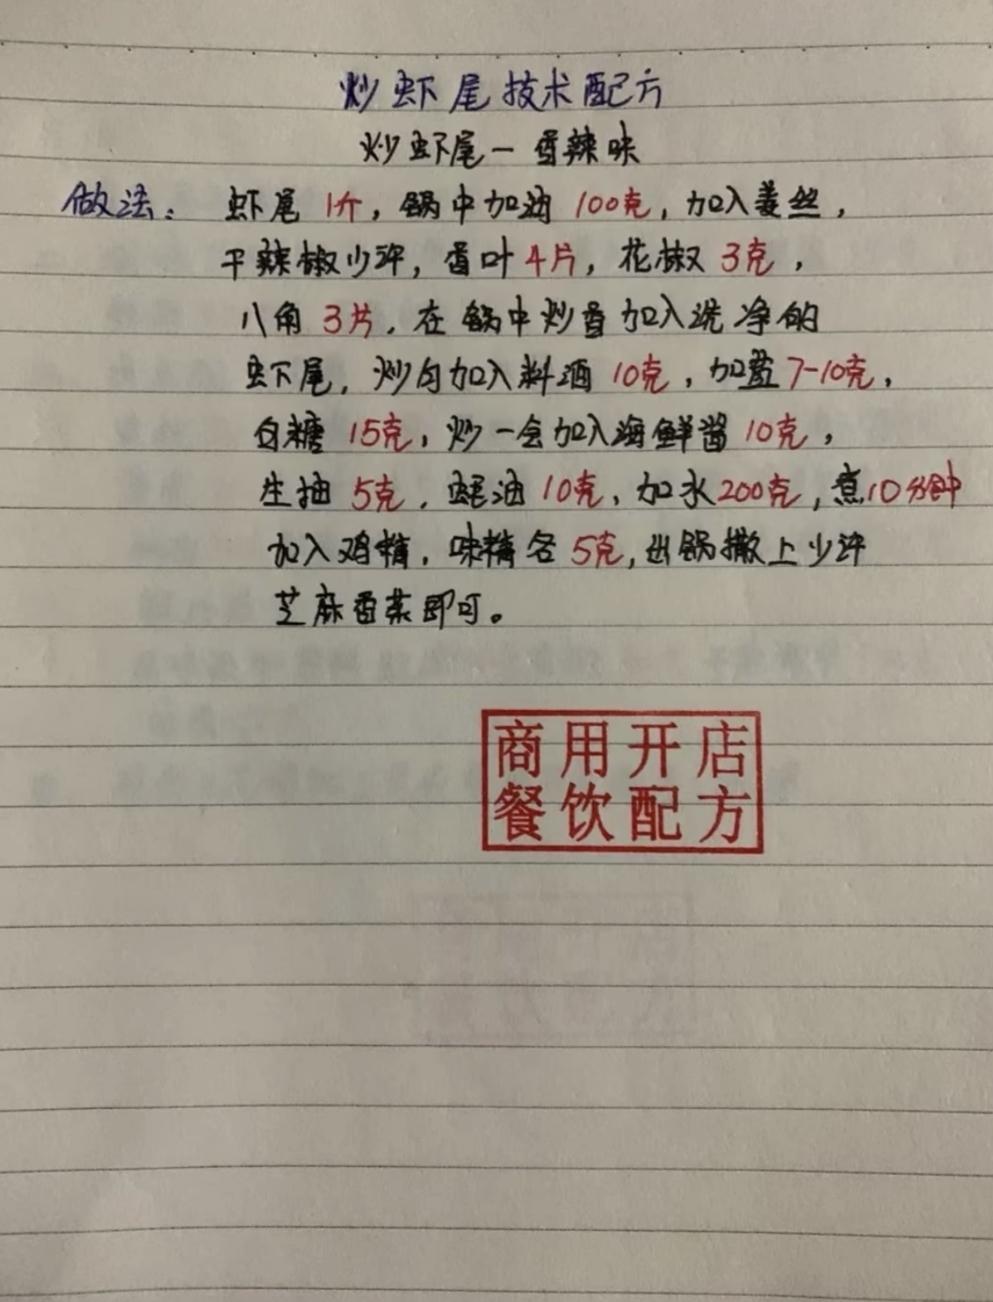 炒虾尾技术配方
炒虾尾一香辣味
做法：虾尾1斤，锅中加油100克，加入姜丝，
干辣椒少许，香叶4片，花椒3克，
八角3片，在锅中炒香加入洗净的
虾尾，炒匀加入料酒10克，加盐7-10克，
白糖15克，炒一会加入海鲜酱10克，
生抽5克，蚝油10克，加水200克，煮10分钟
加入鸡精，味精各5克，出锅撒上少许
芝麻香菜即可。
商用开店
餐饮配方